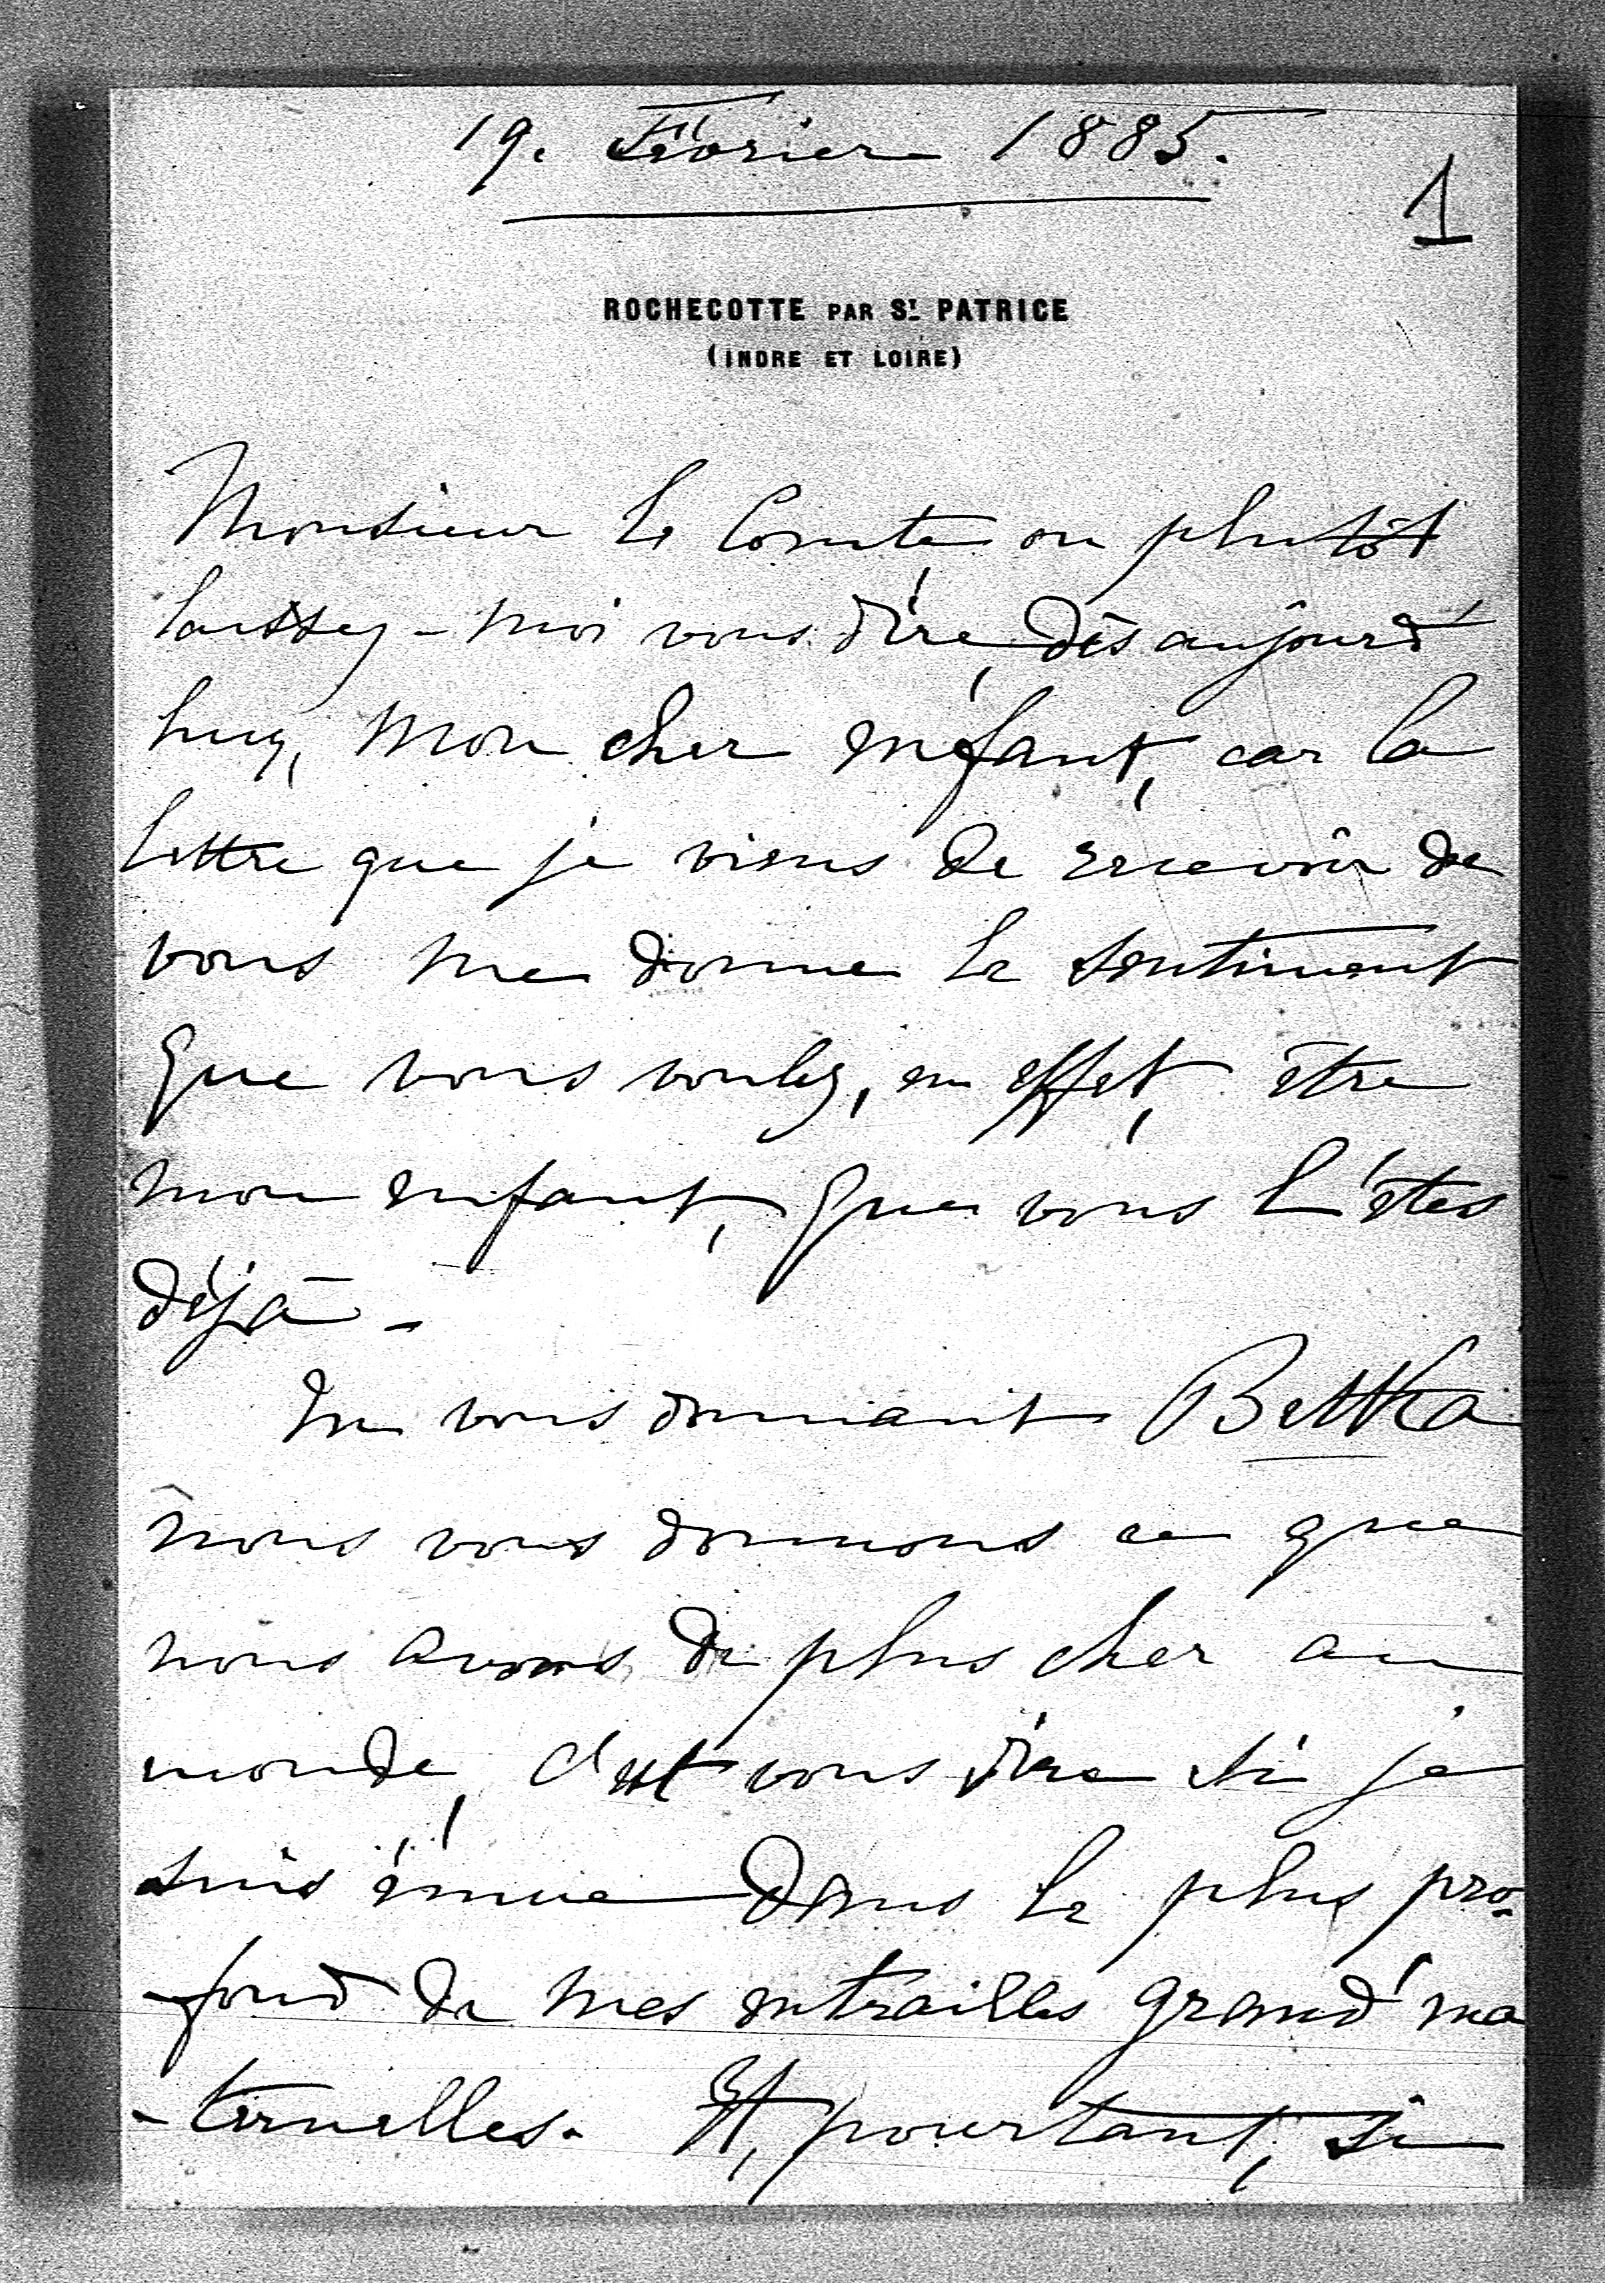 19. Février 1885.
1
ROCHECOTTE PAR ST. PATRICE
(INDRE ET LOIRE)
Monsieur le Comte ou plutôt
laissez-moi vous dire, dès aujourd'
huy, mon cher enfant, car la
lettre que je viens de recevoir de
vous me donne le sentiment
que vous voulez, en effet, être
mon enfant, que vous l'êtes
déjà -
En vous donnant Bettka
nous vous donnons ce que
nous avons de plus cher au
monde, c'est vous dire si je
suis émue dans le plus pro-
-fond de mes entrailles grand'ma
-ternelles. Et, pourtant, si